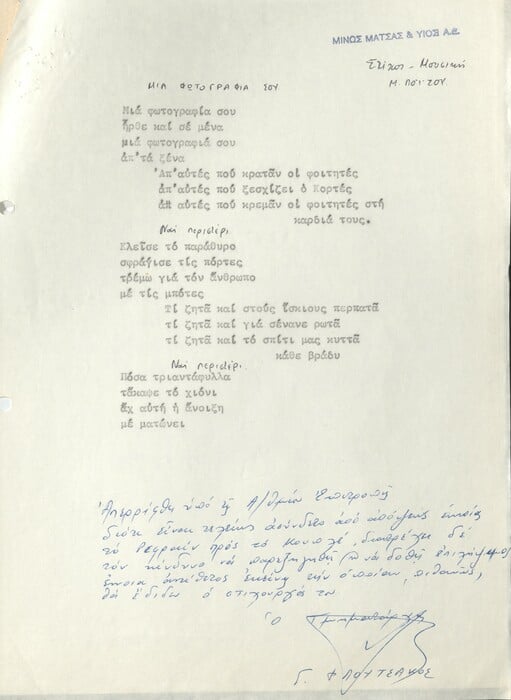 ΜΙΝΩΣ ΜΑΤΣΑΣ & ΥΙΟΣ Α.Ε.
Στίχοι - Μουσική
ΜΙΑ ΦΩΤΟΓΡΑΦΙΑ ΣΟΥ
Μιά φωτογραφία σου
ἦρθε καί σέ μένα
μιά φωτογραφιά σου
ἀπ'τά ξένα
'Απ'αυτές πού κρατᾶν οἱ φοιτητές
ἀπ'αυτές πού ξεσχίζει ὁ Κορτές
ἀπ αυτές πού κρεμᾶν οι φοιτητές στή
καρδιά τους.
Ναί περιστέρι
Κλεῖσε τό παράθυρο
σφράγισε τίς πόρτες
τρέμω γιά τόν ἄνθρωπο
μέ τίς μπότες
Τί ζητᾶ καί στούς ἴσκιους περπατᾶ
τί ζητᾶ καί γιά σένανε ρωτᾶ
τί ζητᾶ καί τό σπίτι μας κυττᾶ
κάθε βράδυ
Ναί περιστέρι
Πόσα τριαντάφυλλα
τἄκαψε τό χιόνι
ἄχ αυτή ἡ ἄνοιξη
μέ ματώνει
Ἀπερρίφθη ὑπό τῆς Α/θμίου Ἐπιτροπῆς
διότι εἶναι τελείως ἀσύνδετο ἀπό ἀπόψεως ἐννοίας
τό Ρεφραίν πρός τό Κουπλέ, διατρέχει δέ
τόν κίνδυνο νά παρεξηγηθῆ νά δοθῆ
ἔννοια ἀντίθετος ἐκείνης τήν ὁποίαν, πιθανῶς,
θά ἔδιδε ὁ στιχουργός του
Ὁ
Γ.